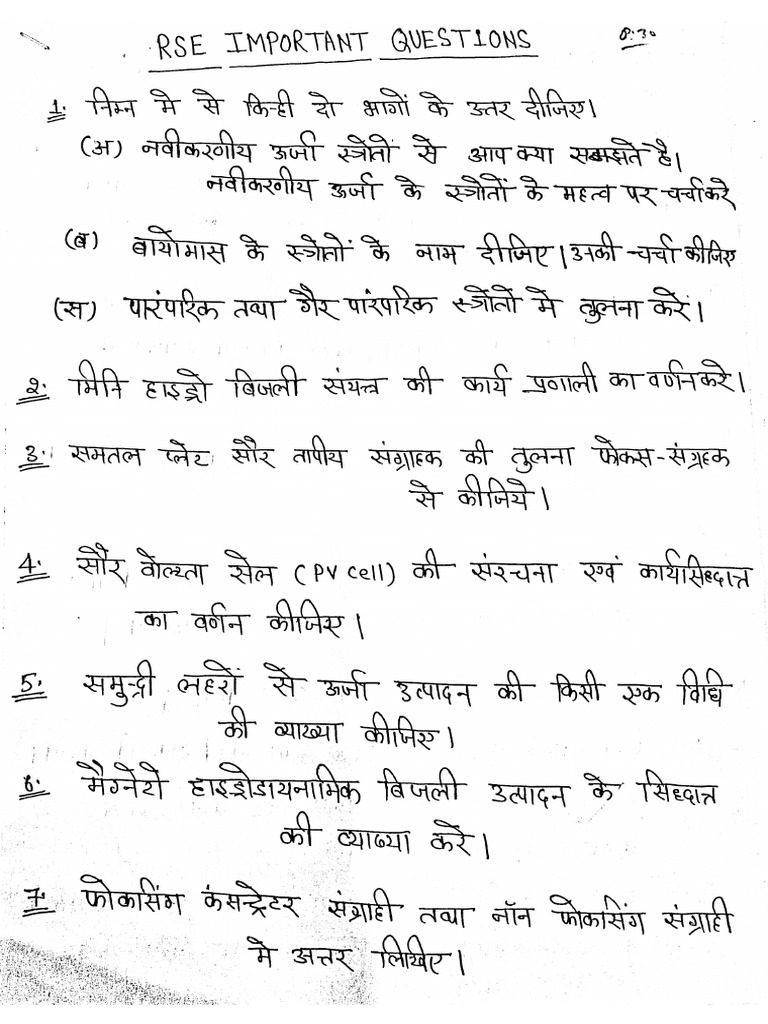 RSE IMPORTANT QUESTIONS 8:30
1. निम्न मे से किन्ही दो भागों के उत्तर दीजिए।
(अ) नवीकरणीय ऊर्जा स्त्रोतों से आप क्या समझते है।
नवीकरणीय ऊर्जा के स्त्रोतों के महत्व पर चर्चा करे
(ब) बायोमास के स्त्रोतों के नाम दीजिए। उनकी चर्चा कीजिए
(स) पारंपरिक तथा गैर पारंपरिक स्त्रोतों मे तुलना करें।
2. मिनि हाइड्रो बिजली संयत्त्र की कार्य प्रणाली का वर्णन करे।
3. समतल प्लेट सौर तापीय संग्राहक की तुलना फोकस-संग्रहक
से कीजिये।
4. सौर वोल्टता सेल (PV cell) की संरचना एवं कार्यसिध्दान्त
का वर्णन कीजिए।
5. समुन्द्री लहरों से ऊर्जा उत्पादन की किसी एक विधि
की व्याख्या कीजिए।
6. मैग्नेटो हाइड्रोडायनामिक बिजली उत्पादन के सिध्दान्त
की व्याख्या करें।
7. फोकसिंग कंसन्ट्रेटर संग्राही तथा नॉन फोकसिंग संग्राही
मे अन्तर लिखिए।